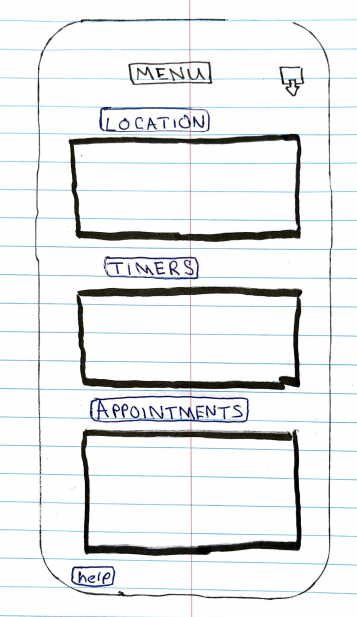 MENU
LOCATION
TIMERS
APPOINTMENTS
help